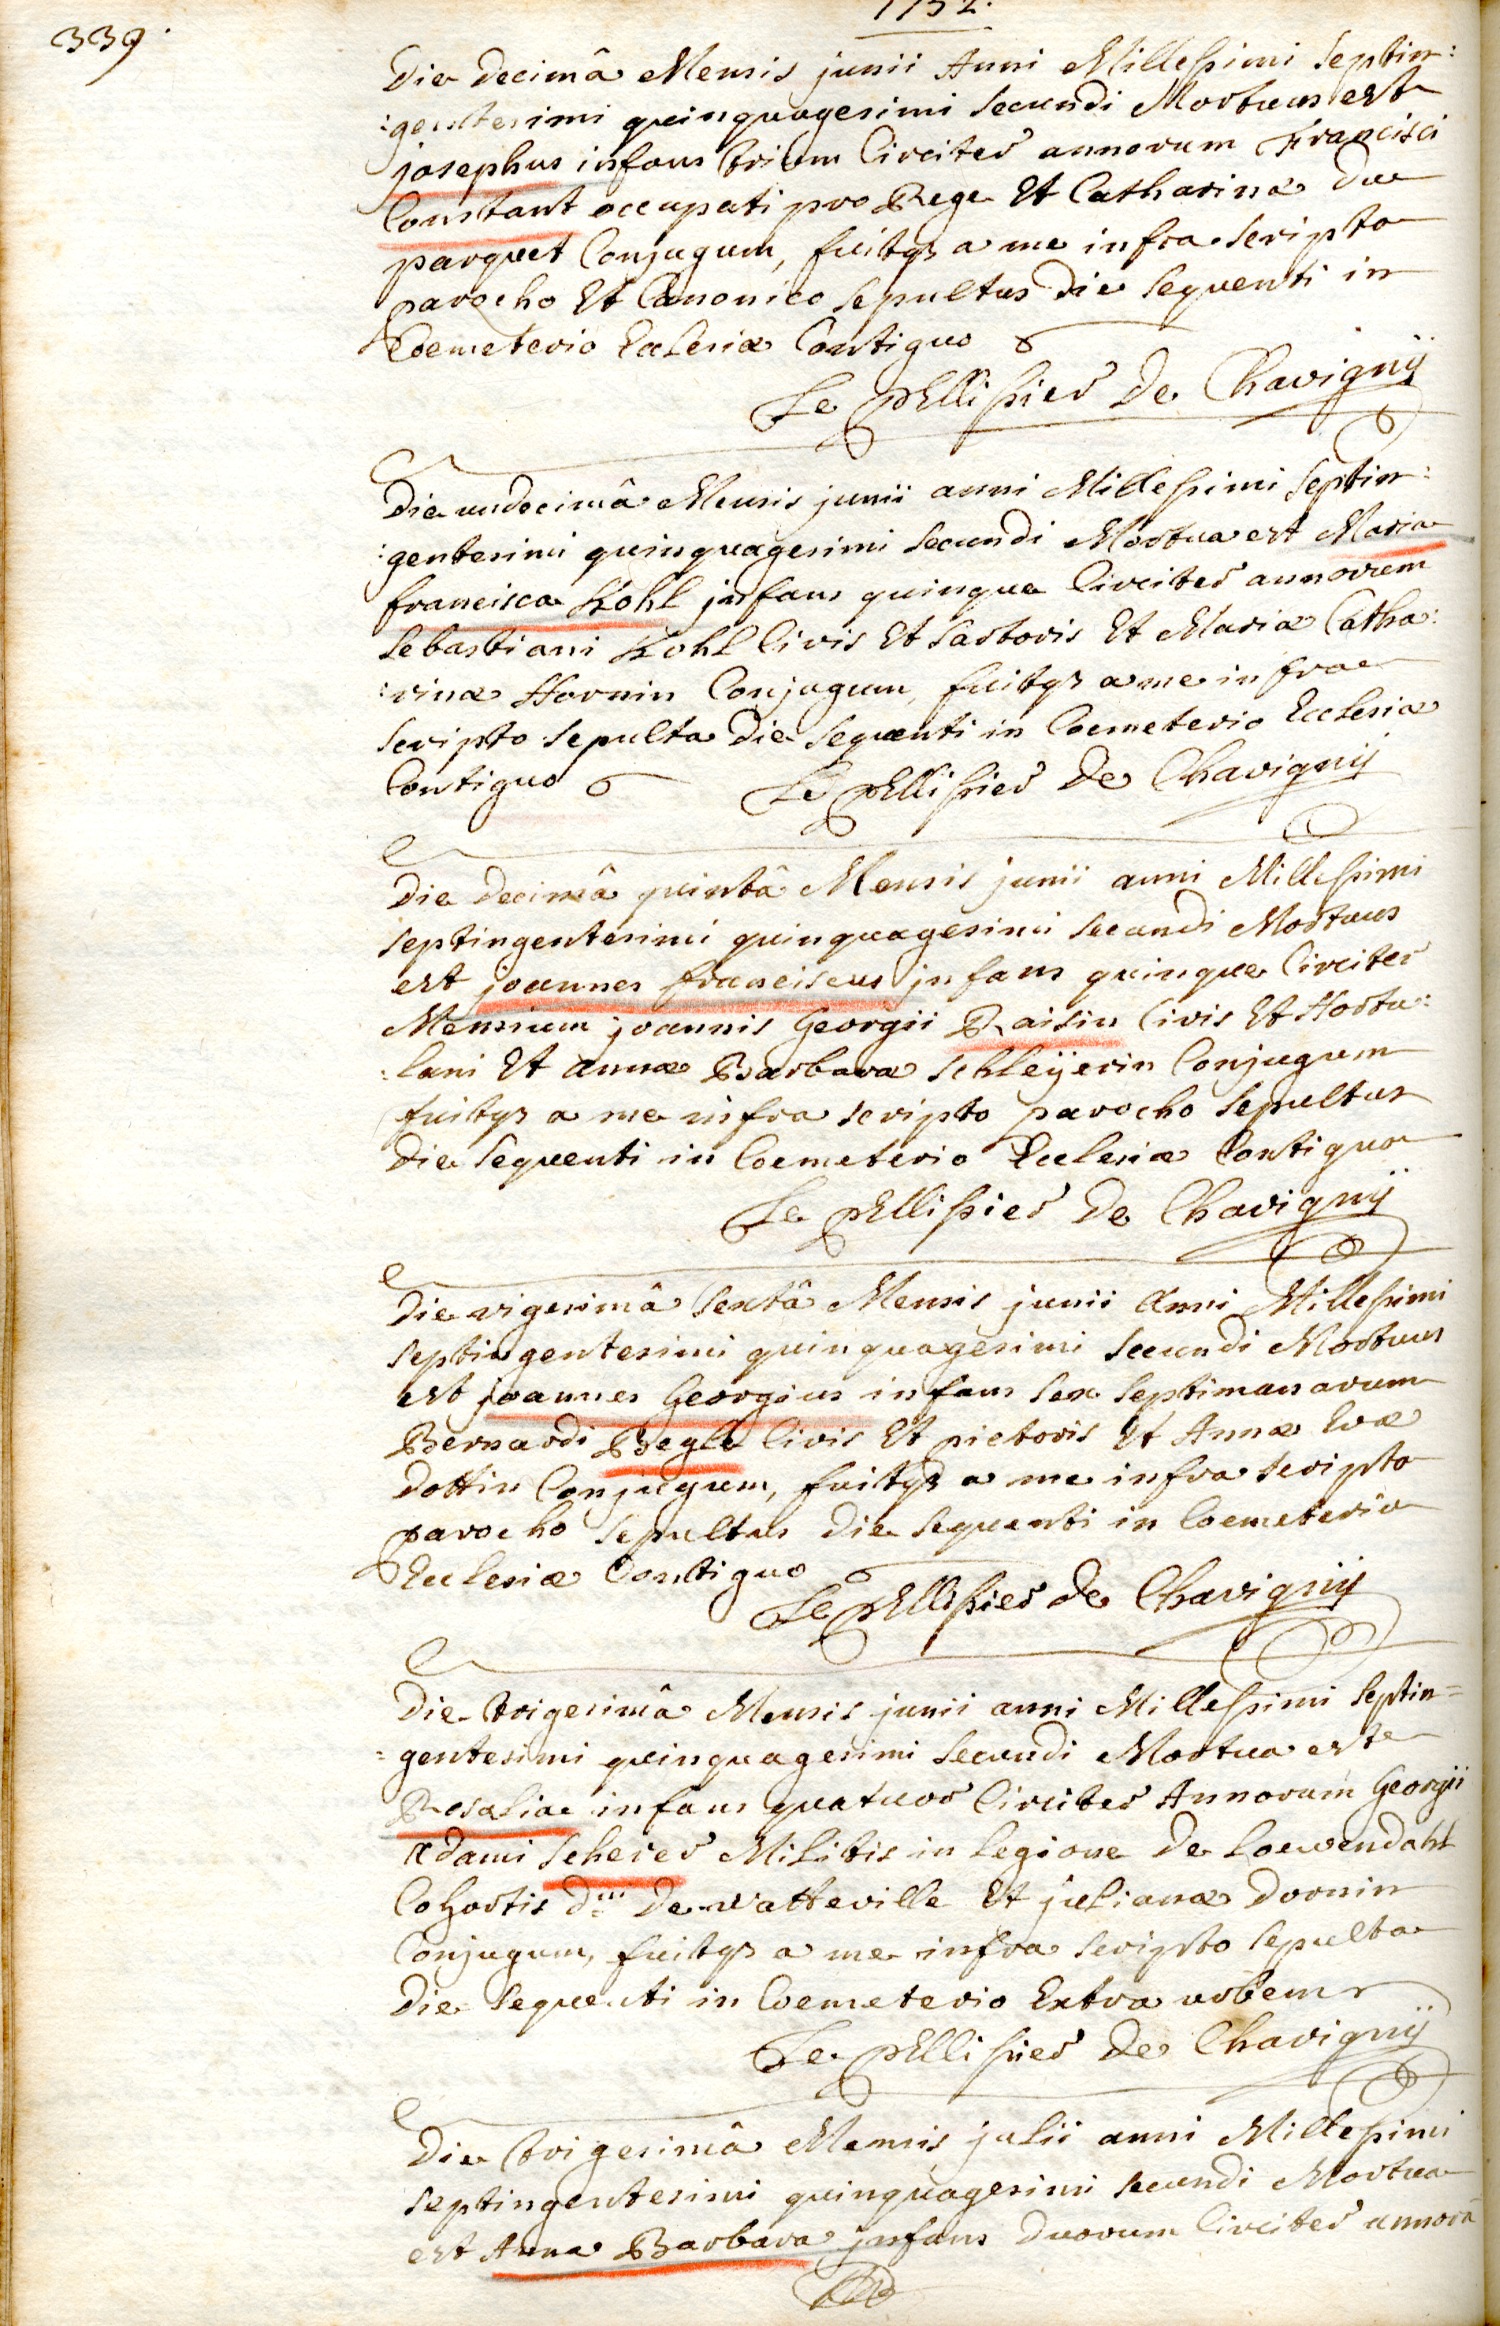 339.
1752.
Die decimâ Mensis junii Anni Millesimi Septin:
:gentesimi quinquagesimi secundi Mortuus est
josephus infans trium Circiter annorum Francisci
Constant occupati pro Rege Et Catharinæ du
parquet Conjugum, fuitqz a me infra scripto
parocho Et Canonico sepultus die sequenti in
Coemeterio Ecclesiæ Contiguo
Le pEllissier De Chavignÿ
Die undecimâ Mensis junii anni Millesimi Septin:
:gentesimi quinquagesimi secundi Mortua est Maria
francisca Kohl jnfans quinque Circiter annorum
Sebastiani Kohl Civis Et Sartoris Et Mariæ Catha:
:rinæ Hornin Conjugum, fuitqz a me infra
scripto sepulta die sequenti in Coemeterio Ecclesiæ
Contiguo
Le pEllissier De Chavignÿ
Die decimâ quintâ Mensis junii anni Millesimi
septingentesimi quinquagesimi secundi Mortuus
est joannes franciscus jnfans quinque Circiter
Mensium joannis Georgii Raisin Civis Et Hortu:
:lani Et annæ Barbaræ schleÿerin Conjugum
fuitqz a me infra scripto parocho sepultus
die sequenti in Coemeterio Ecclesiæ Contiguo
Le pEllissier De Chavignÿ
Die vigesimâ sextâ Mensis junii Anni Millesimi
septingentesimi quinquagesimi secundi Mortuus
est joannes Georgius infans sex septimanarum
Bernardi Begle Civis Et pictoris Et Annæ Evæ
dottin Conjugum, fuitqz a me infra scripto
parocho sepultus die sequenti in Coemeterio
Ecclesiæ Contiguo
Le pEllissier De Chavignÿ
Die trigesimâ Mensis junii anni Millesimi septin=
=gentesimi quinquagesimi secundi Mortua est
Rosalia infans quatuor Circiter Annorum Georgii
adami Scherer Militis in legione De Loewendahl
Cohortis d.ni De Watteville Et julianæ Dornin
Conjugum, fuitqz a me infra scripto sepulta
die sequenti in Coemeterio Extra urbem
Le pEllissier De Chavignÿ
Die trigesimâ Mensis julii anni Millesimi
septingentesimi quinquagesimi secundi Mortua
est Anna Barbara jnfans duorum Circiter annorū